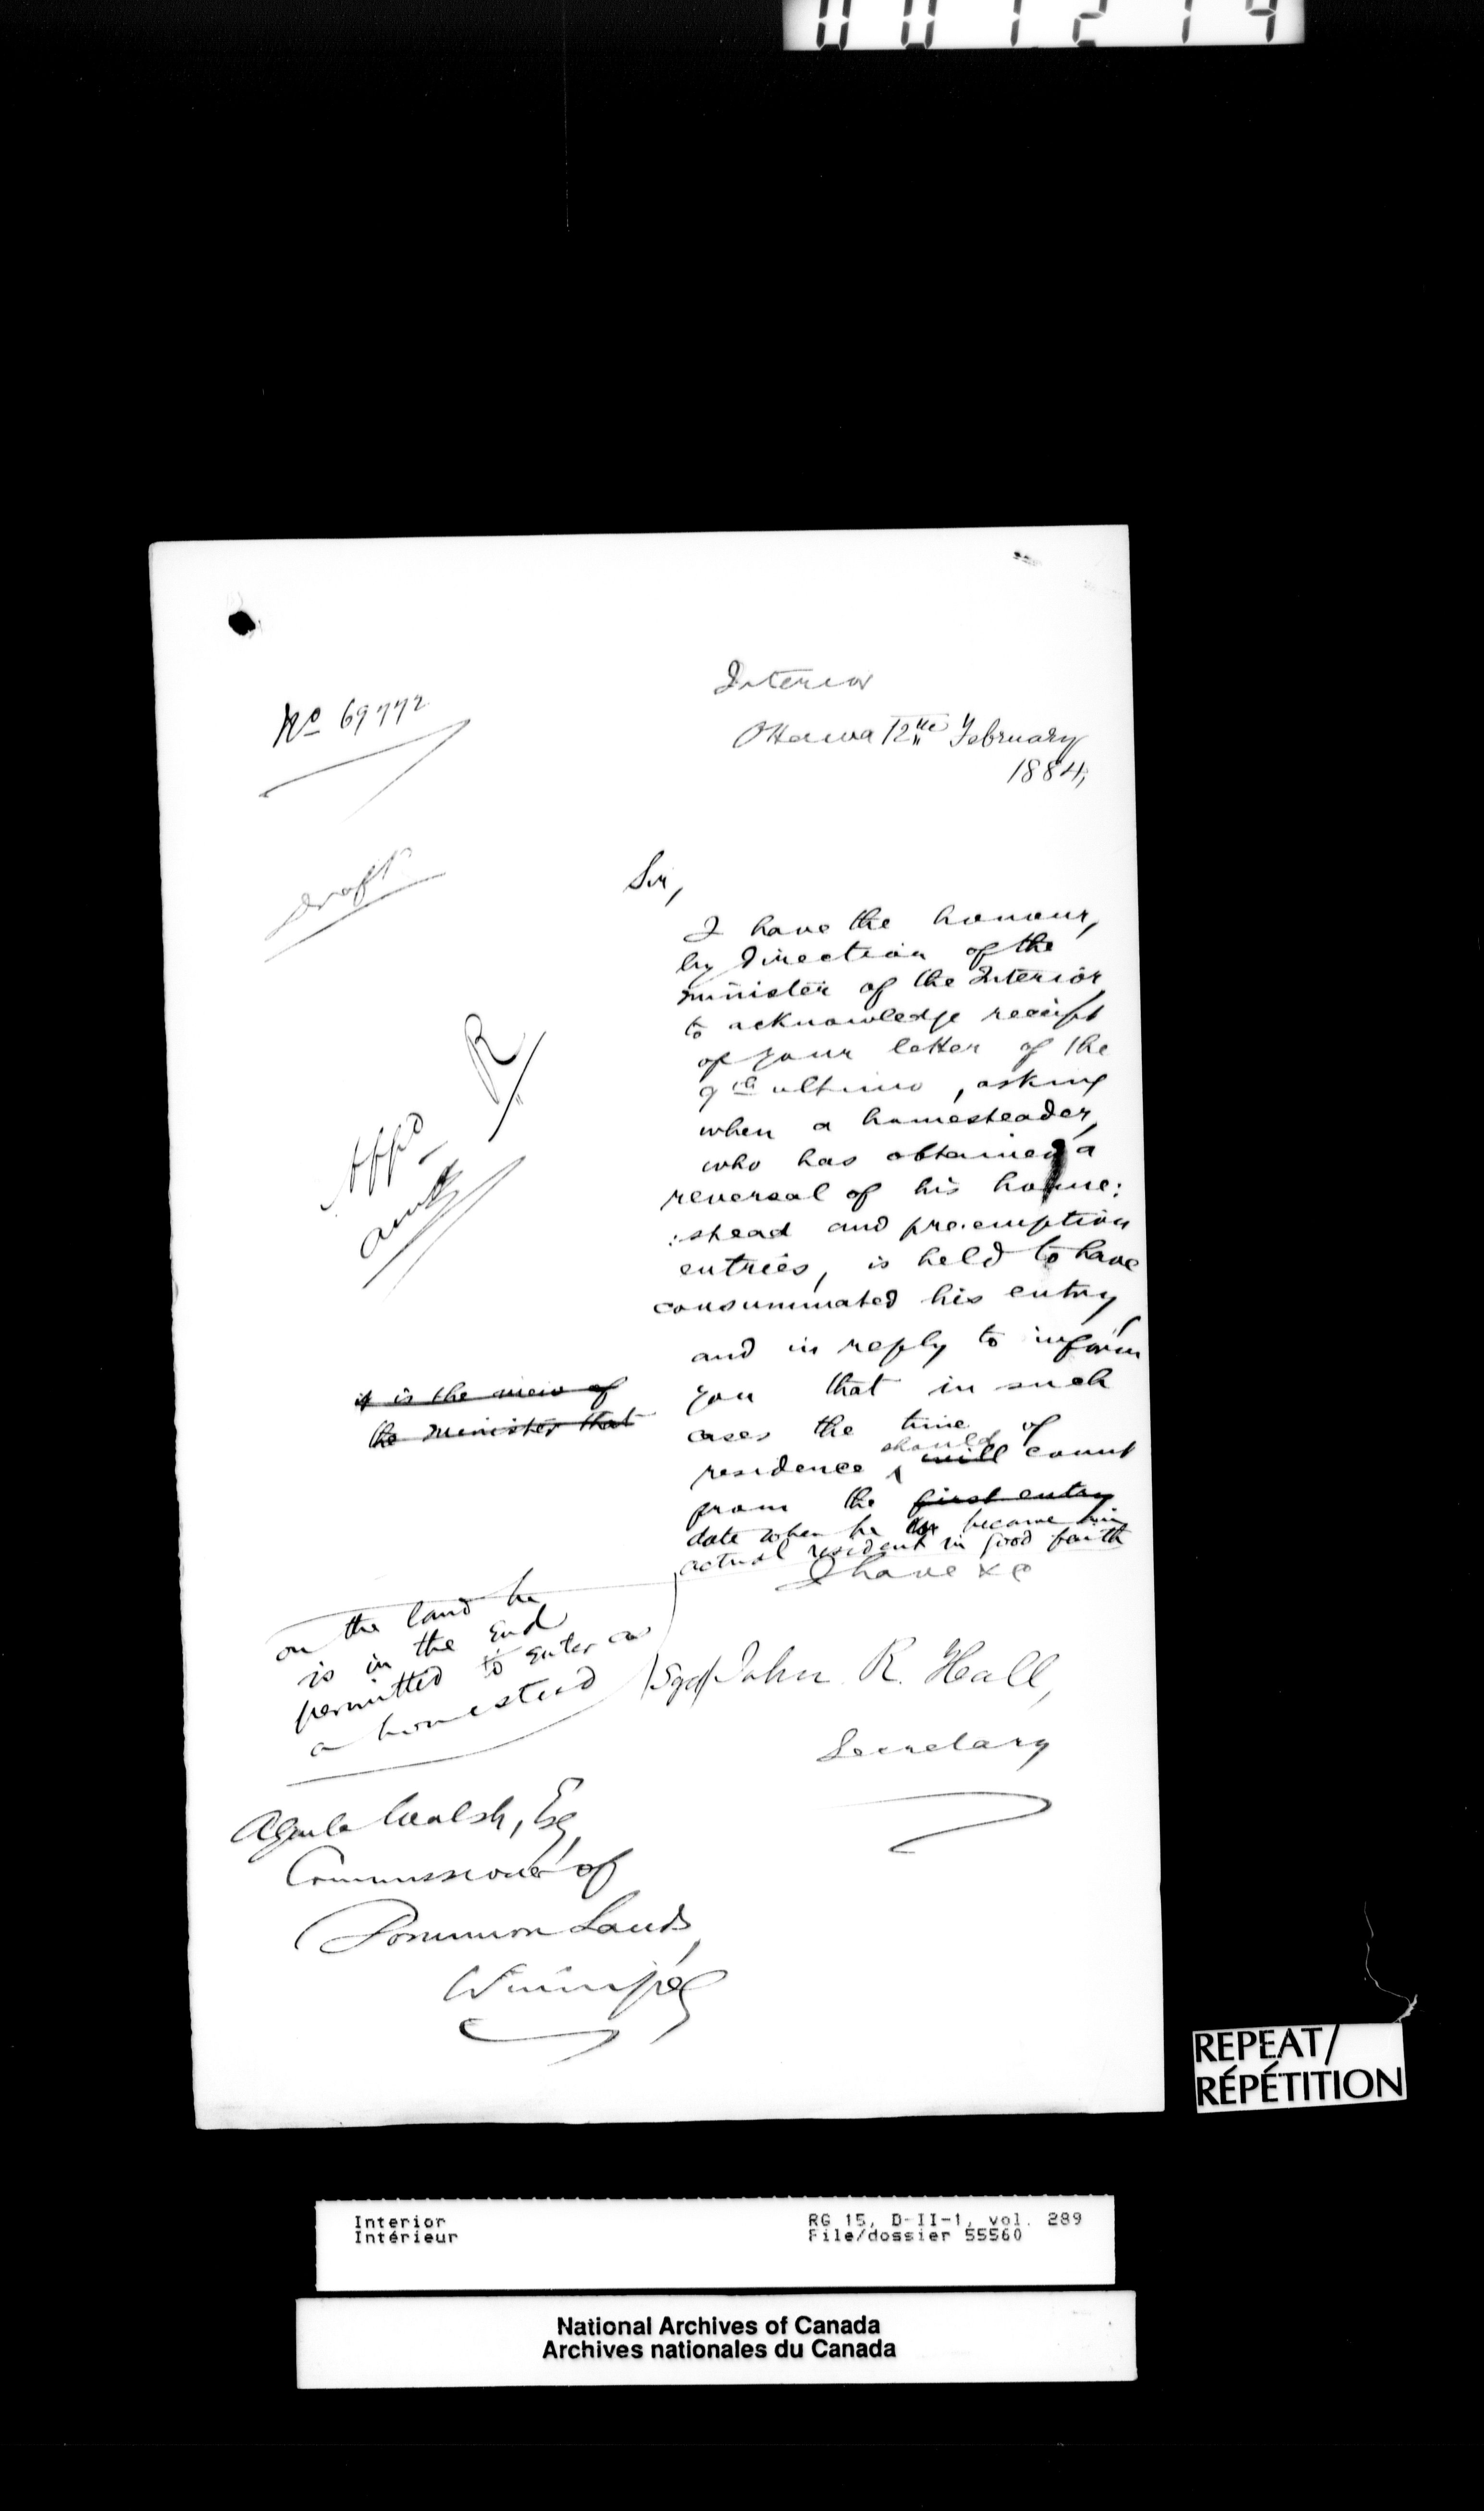 001214
Interior
No 69772
Ottawa 12th February
1884,
Draft
Sir,
I have the honour,
by direction of the
Minister of the Interior
to acknowledge receipt
of your letter of the
9th ultimo, asking
when a homesteader,
who has obtained a
reversal of his home:
:stead and pre-emption
entries, is held to have
consummated his entry,
and in reply to inform
you that in such
cases the time of
residence should will count
from the first entry
date when he became an
actual resident in good faith
R
Appd
it is the view of
the Minister that
on the land he
is in the end
permitted to enter as
a homestead
I have &c
(Sgd) John R. Hall,
Secretary
Aquila Walsh, Esq,
Commissioner of
Dominion Lands,
Winnipeg
REPEAT/
RÉPÉTITION
Interior
Intérieur
RG 15, D-II-1, vol. 289
File/dossier 55560
National Archives of Canada
Archives nationales du Canada